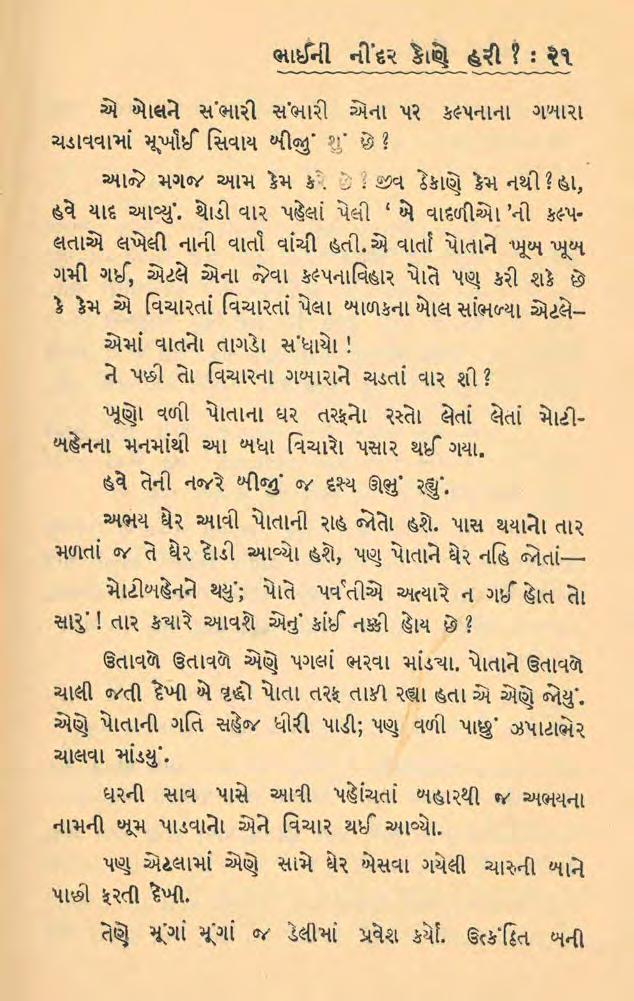 ભાઈની નીંદર કોણે હરી ? : ૨૧
એ બોલને સંભારી સંભારી એના પર કલ્પનાના ગબારા
ચડાવવામાં મૂર્ખાઈ સિવાય બીજું શું છે ?
આજે મગજ આમ કેમ કરે છે ? જીવ ઠેકાણે કેમ નથી ? હા,
હવે યાદ આવ્યું. થોડી વાર પહેલાં પેલી ‘ બે વાદળીઓ ’ની કલ્પ-
લતાએ લખેલી નાની વાર્તા વાંચી હતી. એ વાર્તા પોતાને ખૂબ ખૂબ
ગમી ગઈ, એટલે એના જેવા કલ્પનાવિહાર પોતે પણ કરી શકે છે
કે કેમ એ વિચારતાં વિચારતાં પેલા બાળકના બોલ સાંભળ્યા એટલે–
એમાં વાતનો તાગડો સંધાયો !
ને પછી તો વિચારના ગબારાને ચડતાં વાર શી ?
ખૂણો વળી પોતાના ઘર તરફનો રસ્તો લેતાં લેતાં મોટી-
બહેનના મનમાંથી આ બધા વિચારો પસાર થઈ ગયા.
હવે તેની નજરે બીજું જ દૃશ્ય ઊભું રહ્યું.
અભય ઘેર આવી પોતાની રાહ જોતો હશે. પાસ થયાનો તાર
મળતાં જ તે ઘેર દોડી આવ્યો હશે, પણ પોતાને ઘેર નહિ જોતાં—
મોટીબહેનને થયું; પોતે પર્વતીએ અત્યારે ન ગઈ હોત તો
સારું ! તાર ક્યારે આવશે એનું કાંઈ નક્કી હોય છે ?
ઉતાવળે ઉતાવળે એણે પગલાં ભરવા માંડ્યા. પોતાને ઉતાવળે
ચાલી જતી દેખી બે વૃદ્ધો પોતા તરફ તાકી રહ્યા હતા એ એણે જોયું.
એણે પોતાની ગતિ સહેજ ધીરી પાડી; પણ વળી પાછું ઝપાટાભેર
ચાલવા માંડયું.
ઘરની સાવ પાસે આવી પહોંચતાં બહારથી જ અભયના
નામની બૂમ પાડવાનો એને વિચાર થઈ આવ્યો.
પણ એટલામાં એણે સામે ઘેર બેસવા ગયેલી ચારુની બાને
પાછી ફરતી દેખી.
તેણે મૂંગાં મૂંગાં જ ડેલીમાં પ્રવેશ કર્યો. ઉત્કંઠિત બની